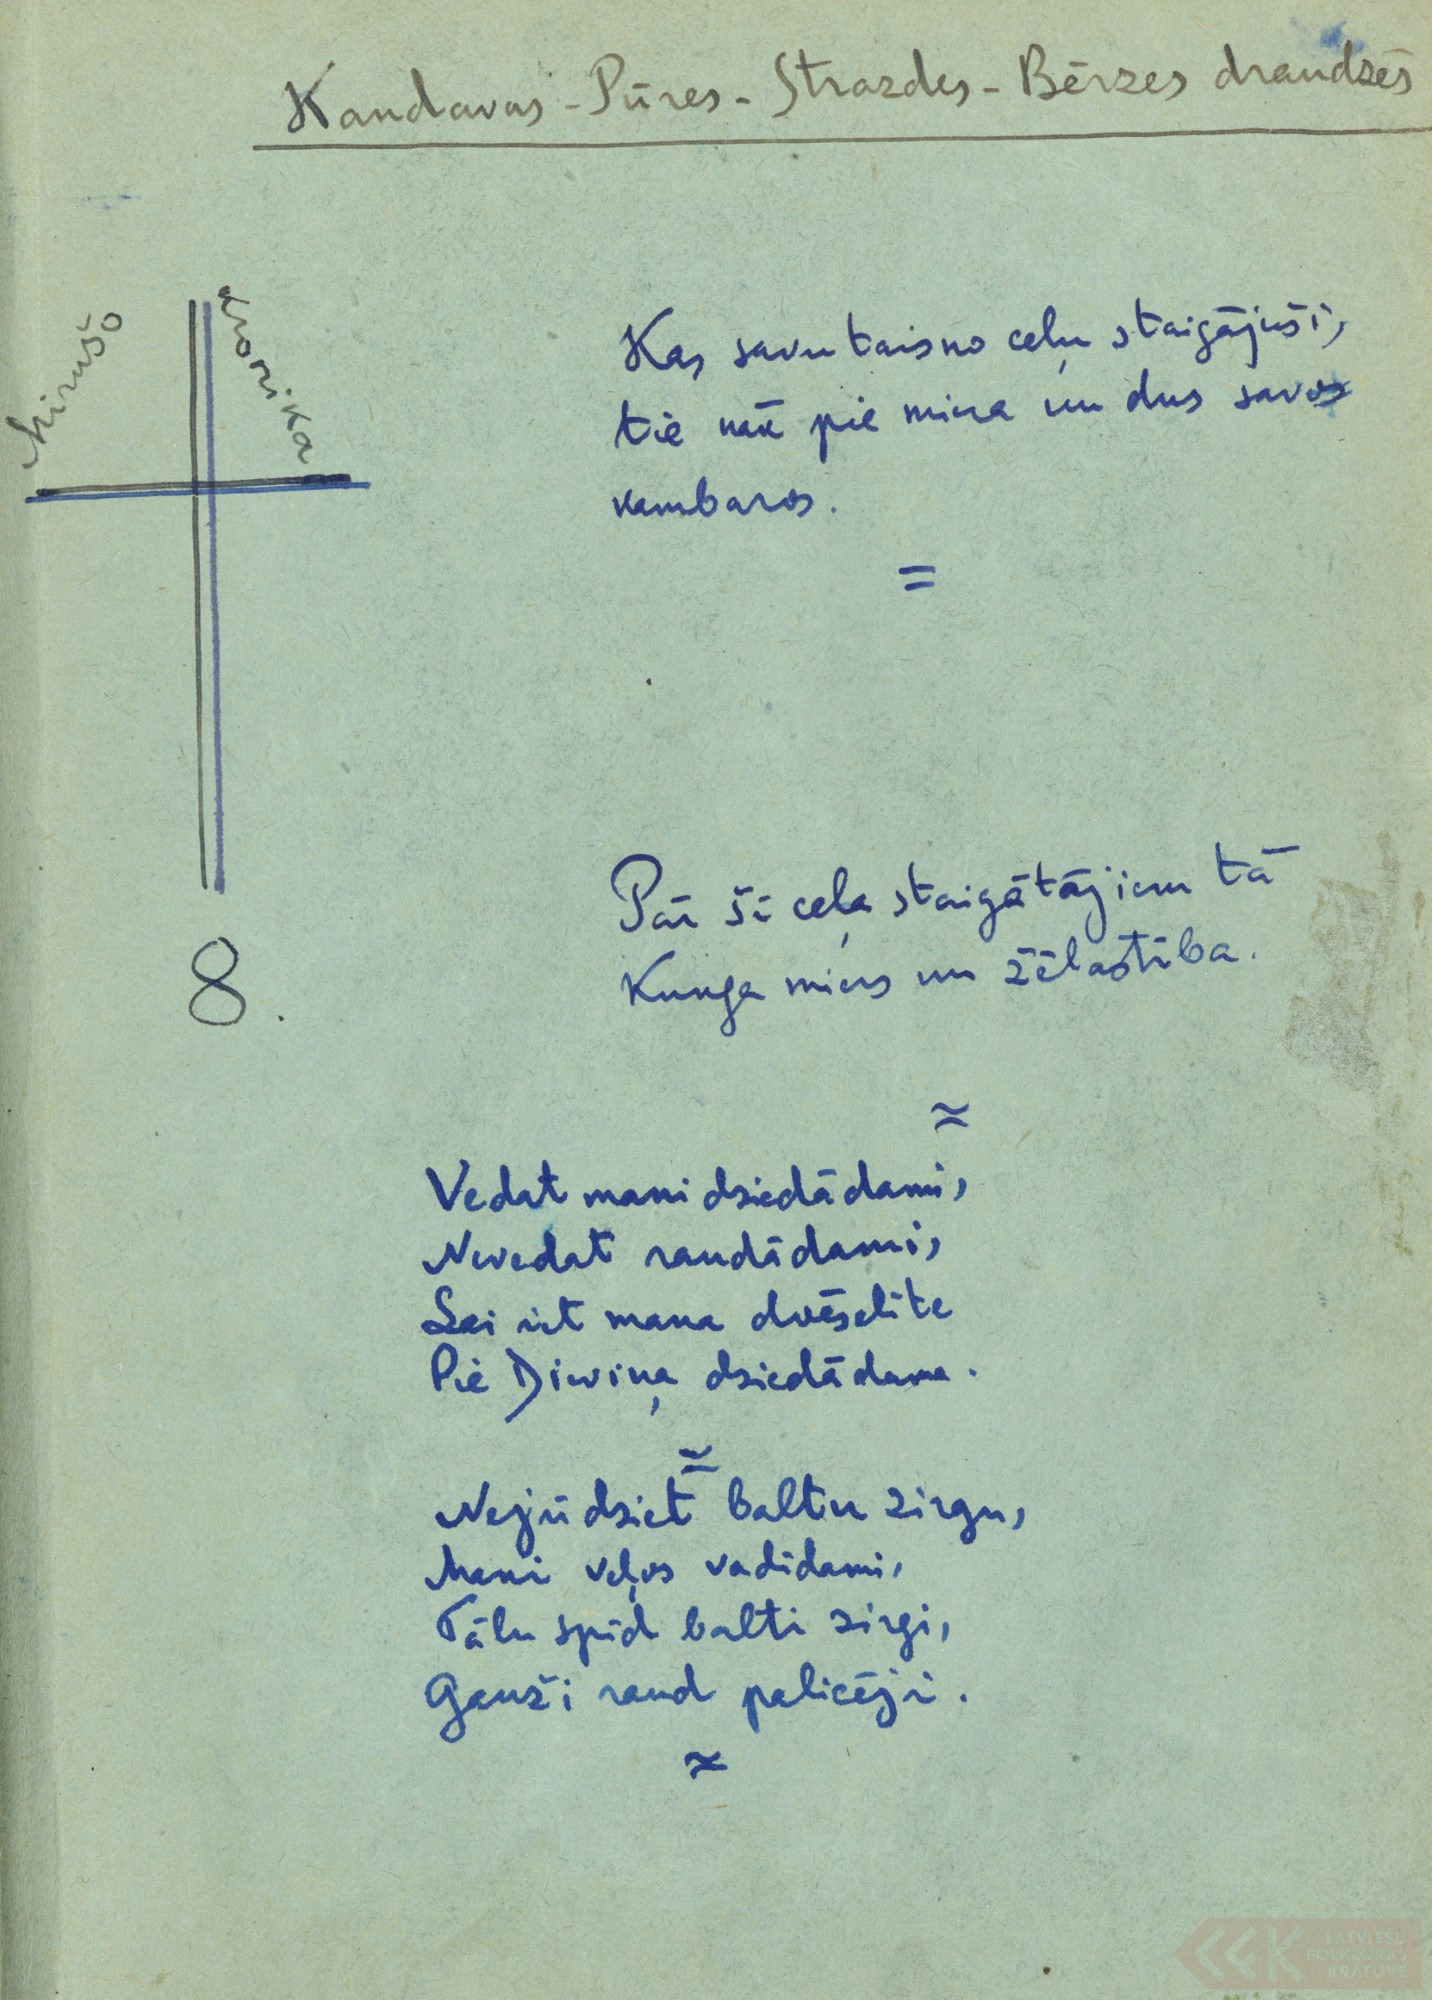 Kandavas - Pūres - Strazdes - Bērzes draudzēs
Mirušo
kronika
Kas savu taisno ceļu staigājuši,
tie nāk pie miera un dus savos
kambaros.
=
8.
Par šī ceļa staigātājiem tā
Kunga miers un žēlastība.
≈
Vedat mani dziedādami,
Nevedat raudādami,
Lai iet mana dvēselīte
Pie Dieviņa dziedādama.
≈
Nejūdziet baltu zirgu,
Mani veļos vadīdami,
Tālu spīd balti zirgi,
Gauži raud palicēji.
≈
LATVIEŠU
FOLKLORAS
KRĀTUVE